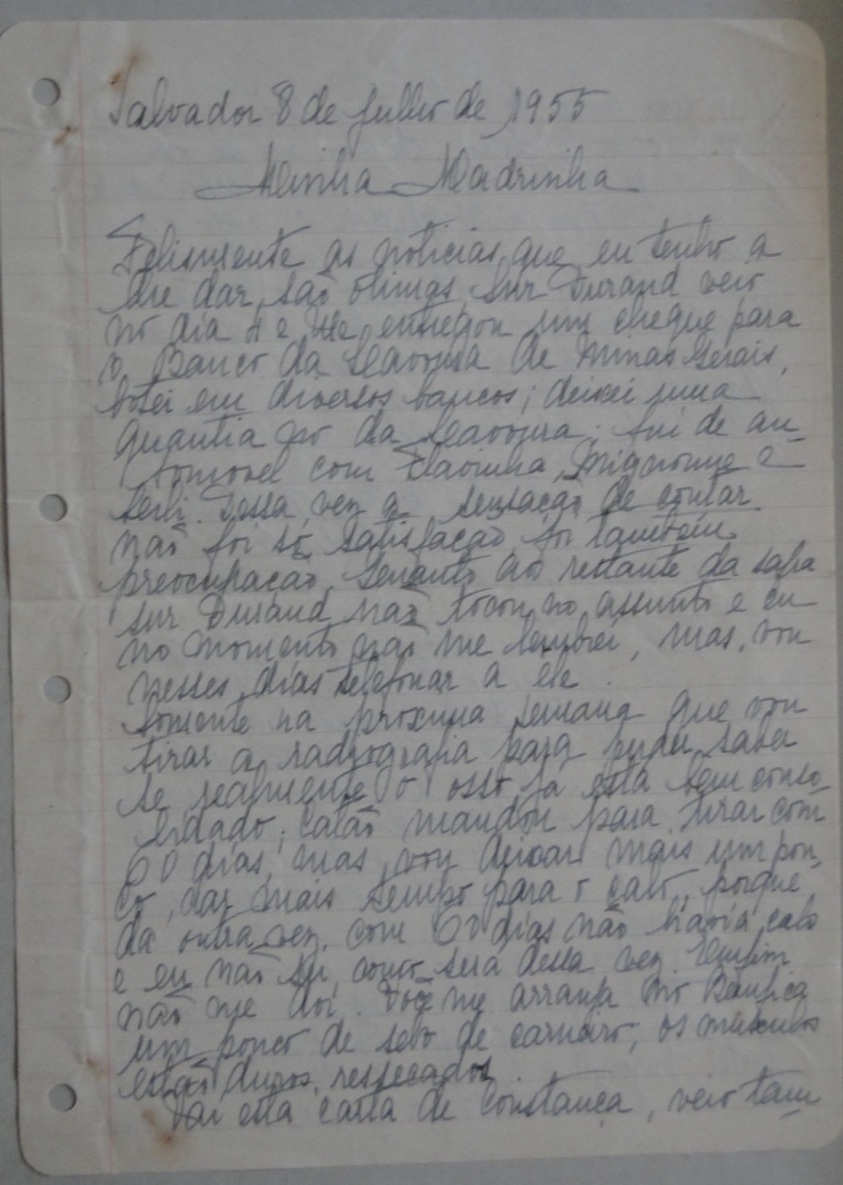 Salvador 8 de Julho de 1955
Minha Madrinha
Felismente as noticias que eu tenho a
lhe dar são otimas Snr Durand veio
no dia e me entregou um cheque para
o Banco da Lavoura de Minas Gerais,
botei em diversos bancos; deixei uma
quantia no da Lavoura; fui de au-
tomovel com Flavinha, Mignonne e
Dessa vez a sensação de contar
não foi só satisfação foi tambem
preocupação. ao restante da safra
Snr Durand não tocou no assunto e eu
no momento não me lembrei, mas, vou
nesses dias telefonar a ele.
Somente na proxima semana que vou
tirar a radiografia para puder saber
se realmente o osso já está bem conso-
lidado; Catão mandou para tirar com
60 dias, mas, vou deixar mais um pou-
co, dar mais tempo para o calo, porque
da outra vez, com 60 dias não havia calo
e eu não sei como será dessa vez. Emfim
não me doi. Você me arranja no Bemfica
um pouco de sebo de carneiro, os musculos
estão duros, ressecados
Vai esta carta de Constança, veio tam